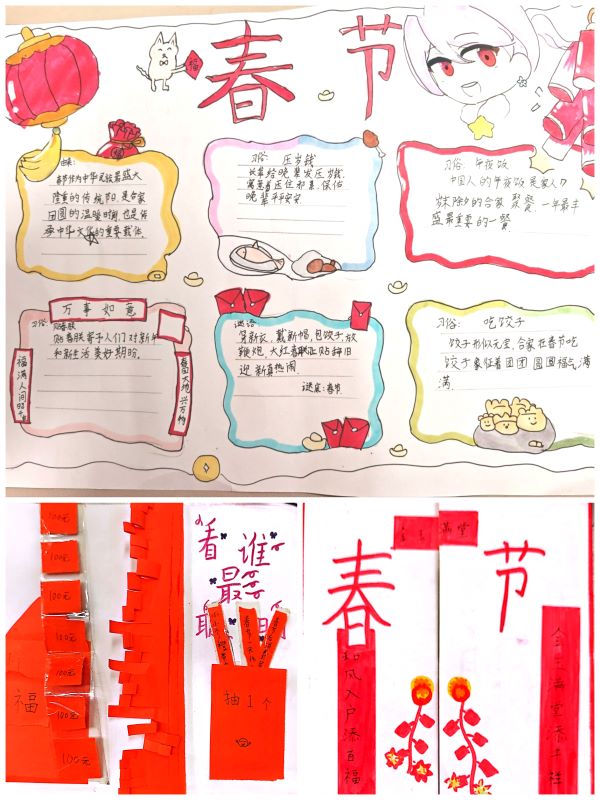 春节
福
由来:
春节作为中华民族最盛大
隆重的传统节日,是合家
团圆的温暖时刻,也是传
承中华文化的重要载体。
习俗: 压岁钱
长辈给晚辈发压岁钱,
寓意着压住邪祟,保佑
晚辈平平安安
习俗:年夜饭
中国人的年夜饭是家人
除夕的合家聚餐,一年最丰
盛最重要的一餐
万事如意
福满人间
春回大地兴万物
习俗:贴春联
贴春联寄予人们对新年
和新生活美好期盼。
谜语
穿新衣,戴新帽,包饺子,放
鞭炮,大红春联正贴辞旧
迎新真热闹.
谜底:春节
习俗: 吃饺子
饺子形似元宝,合家在春节吃
饺子象征着团团圆圆福气满
满.
100元
100元
100元
100元
100元
100元
100元
福
看谁
最
聪明
抽1个
春节
满堂
和风入户添百福